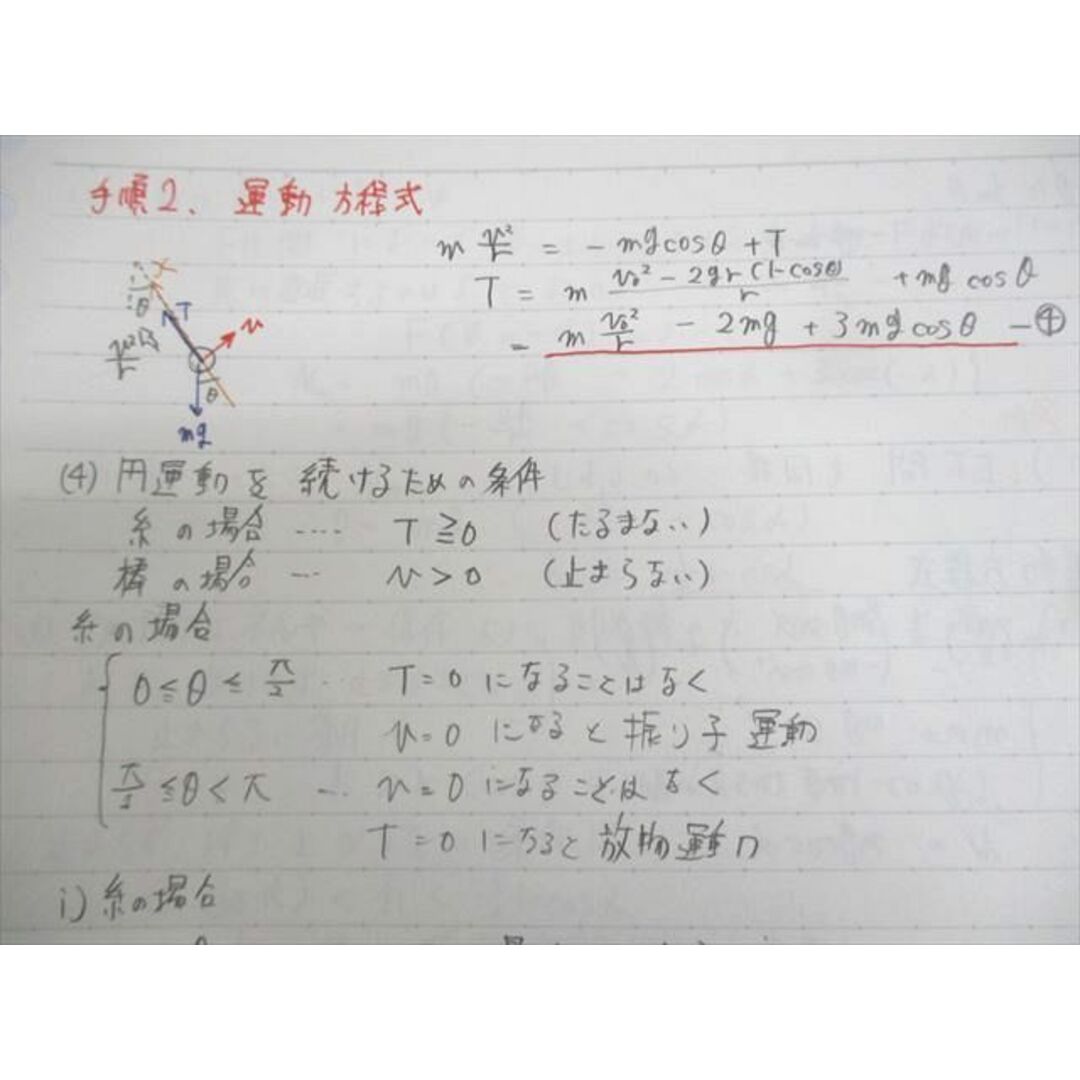 手順2. 運動方程式
m v²/r = - mg cosθ + T
T = m (v₀² - 2gr(1-cosθ))/r + mg cosθ
= m v₀²/r - 2mg + 3mg cosθ -④
x
θ
T
v
v²/r
θ
mg
(4) 円運動を続けるための条件
糸の場合 ‥‥ T ≧ 0 (たるまない)
棒の場合 ‥ v > 0 (止まらない)
糸の場合
0 ≦ θ ≦ π/2 ‥ T = 0 になることはなく
v = 0 になると振り子運動
π/2 ≦ θ < π ‥ v = 0 になることはなく
T = 0 になると放物運動
i) 糸の場合